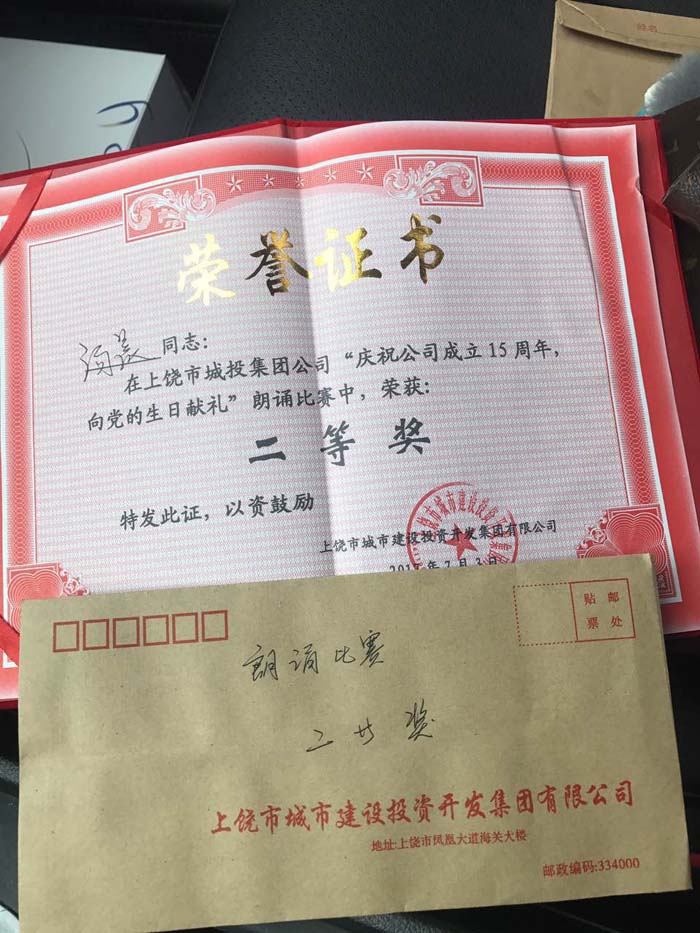 姓名
荣誉证书
同志：
在上饶市城投集团公司“庆祝公司成立15周年，
向党的生日献礼”朗诵比赛中，荣获：
二等奖
特发此证，以资鼓励
上饶市城市建设投资开发集团有限公司
2017年7月3日
贴邮
票处
朗诵比赛
二廾奖
上饶市城市建设投资开发集团有限公司
地址:上饶市凤凰大道海关大楼
邮政编码:334000